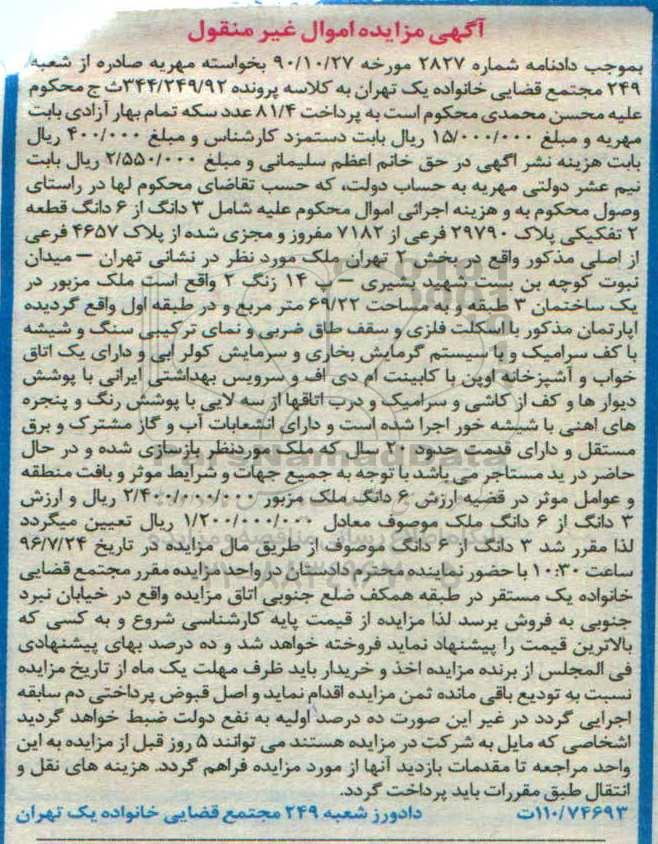 آگهی مزایده اموال غیر منقول
بموجب دادنامه شماره ۲۸۲۷ مورخه ۹۰/۱۰/۲۷ بخواسته مهریه صادره از شعبه
۲۴۹ مجتمع قضایی خانواده یک تهران به کلاسه پرونده ۳۴۴/۲۴۹/۹۲ث ج محکوم
علیه محسن محمدی محکوم است به پرداخت ۸۱/۴ عدد سکه تمام بهار آزادی بابت
مهریه و مبلغ ۱۵/۰۰۰/۰۰۰ ریال بابت دستمزد کارشناس و مبلغ ۴۰۰/۰۰۰ ریال
بابت هزینه نشر اگهی در حق خانم اعظم سلیمانی و مبلغ ۲/۵۵۰/۰۰۰ ریال بابت
نیم عشر دولتی مهریه به حساب دولت، که حسب تقاضای محکوم لها در راستای
وصول محکوم به و هزینه اجرائی اموال محکوم علیه شامل ۳ دانگ از ۶ دانگ قطعه
۲ تفکیکی پلاک ۲۹۷۹۰ فرعی از ۷۱۸۲ مفروز و مجزی شده از پلاک ۴۶۵۷ فرعی
از اصلی مذکور واقع در بخش ۲ تهران ملک مورد نظر در نشانی تهران – میدان
نبوت کوچه بن بست شهید بشیری – پ ۱۴ زنگ ۲ واقع است ملک مزبور در
یک ساختمان ۳ طبقه و به مساحت ۶۹/۲۲ متر مربع و در طبقه اول واقع گردیده
اپارتمان مذکور با اسکلت فلزی و سقف طاق ضربی و نمای ترکیبی سنگ و شیشه
با کف سرامیک و با سیستم گرمایش بخاری و سرمایش کولر ابی و دارای یک اتاق
خواب و آشپزخانه اوپن با کابینت ام دی اف و سرویس بهداشتی ایرانی با پوشش
دیوار ها و کف از کاشی و سرامیک و درب اتاقها از سه لایی با پوشش رنگ و پنجره
های اهنی با شیشه خور اجرا شده است و دارای انشعابات آب و گاز مشترک و برق
مستقل و دارای قدمت حدود ۲۰ سال که ملک موردنظر بازسازی شده و در حال
حاضر در ید مستاجر می باشد با توجه به جمیع جهات و شرایط موثر و بافت منطقه
و عوامل موثر در قضیه ارزش ۶ دانگ ملک مزبور ۲/۴۰۰/۰۰۰/۰۰۰ ریال و ارزش
۳ دانگ از ۶ دانگ ملک موصوف معادل ۱/۲۰۰/۰۰۰/۰۰۰ ریال تعیین میگردد
لذا مقرر شد ۳ دانگ از ۶ دانگ موصوف از طریق مال مزایده در تاریخ ۹۶/۷/۲۴
ساعت ۱۰:۳۰ با حضور نماینده محترم دادستان در واحد مزایده مقرر مجتمع قضایی
خانواده یک مستقر در طبقه همکف ضلع جنوبی اتاق مزایده واقع در خیابان نبرد
جنوبی به فروش برسد لذا مزایده از قیمت پایه کارشناسی شروع و به کسی که
بالاترین قیمت را پیشنهاد نماید فروخته خواهد شد و ده درصد بهای پیشنهادی
فی المجلس از برنده مزایده اخذ و خریدار باید ظرف مهلت یک ماه از تاریخ مزایده
نسبت به تودیع باقی مانده ثمن مزایده اقدام نماید و اصل قبوض پرداختی دم سابقه
اجرایی گردد در غیر این صورت ده درصد اولیه به نفع دولت ضبط خواهد گردید
اشخاصی که مایل به شرکت در مزایده هستند می توانند ۵ روز قبل از مزایده به این
واحد مراجعه تا مقدمات بازدید آنها از مورد مزایده فراهم گردد. هزینه های نقل و
انتقال طبق مقررات باید پرداخت گردد.
۱۱۰/۷۴۶۹۳ت دادورز شعبه ۲۴۹ مجتمع قضایی خانواده یک تهران